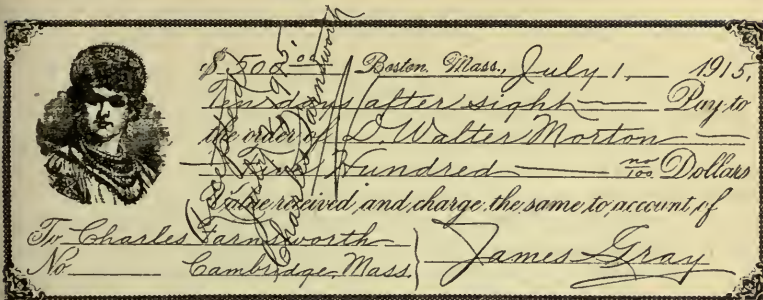 $500 00 Boston, Mass., July 1 1915.
Ten days after sight Pay to
the order of D. Walter Morton
Hundred no/100 Dollars
Value received and charge the same to account of
To Charles Farnsworth
No Cambridge, Mass.
James Gray
Accepted
Charles Farnsworth